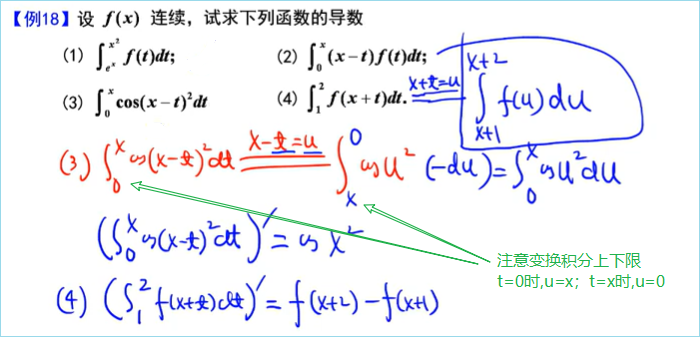 【例18】设 f(x) 连续，试求下列函数的导数
(1) ∫_{e^x}^{x^2} f(t)dt; (2) ∫_0^x (x-t)f(t)dt;
(3) ∫_0^x cos(x-t)^2dt (4) ∫_1^2 f(x+t)dt. x+t=u ∫_{x+1}^{x+2} f(u)du
(3) ∫_0^x cos(x-t)^2dt x-t=u ∫_x^0 cosu^2 (-du)=∫_0^x cosu^2du
(∫_0^x cos(x-t)^2dt)'=cosx^2
注意变换积分上下限
t=0时,u=x；t=x时,u=0
(4) (∫_1^2 f(x+t)dt)'=f(x+2)-f(x+1)